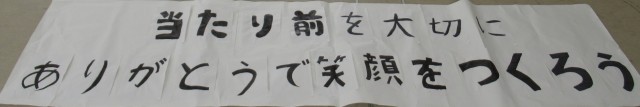 当たり前を大切に
ありがとうで笑顔をつくろう